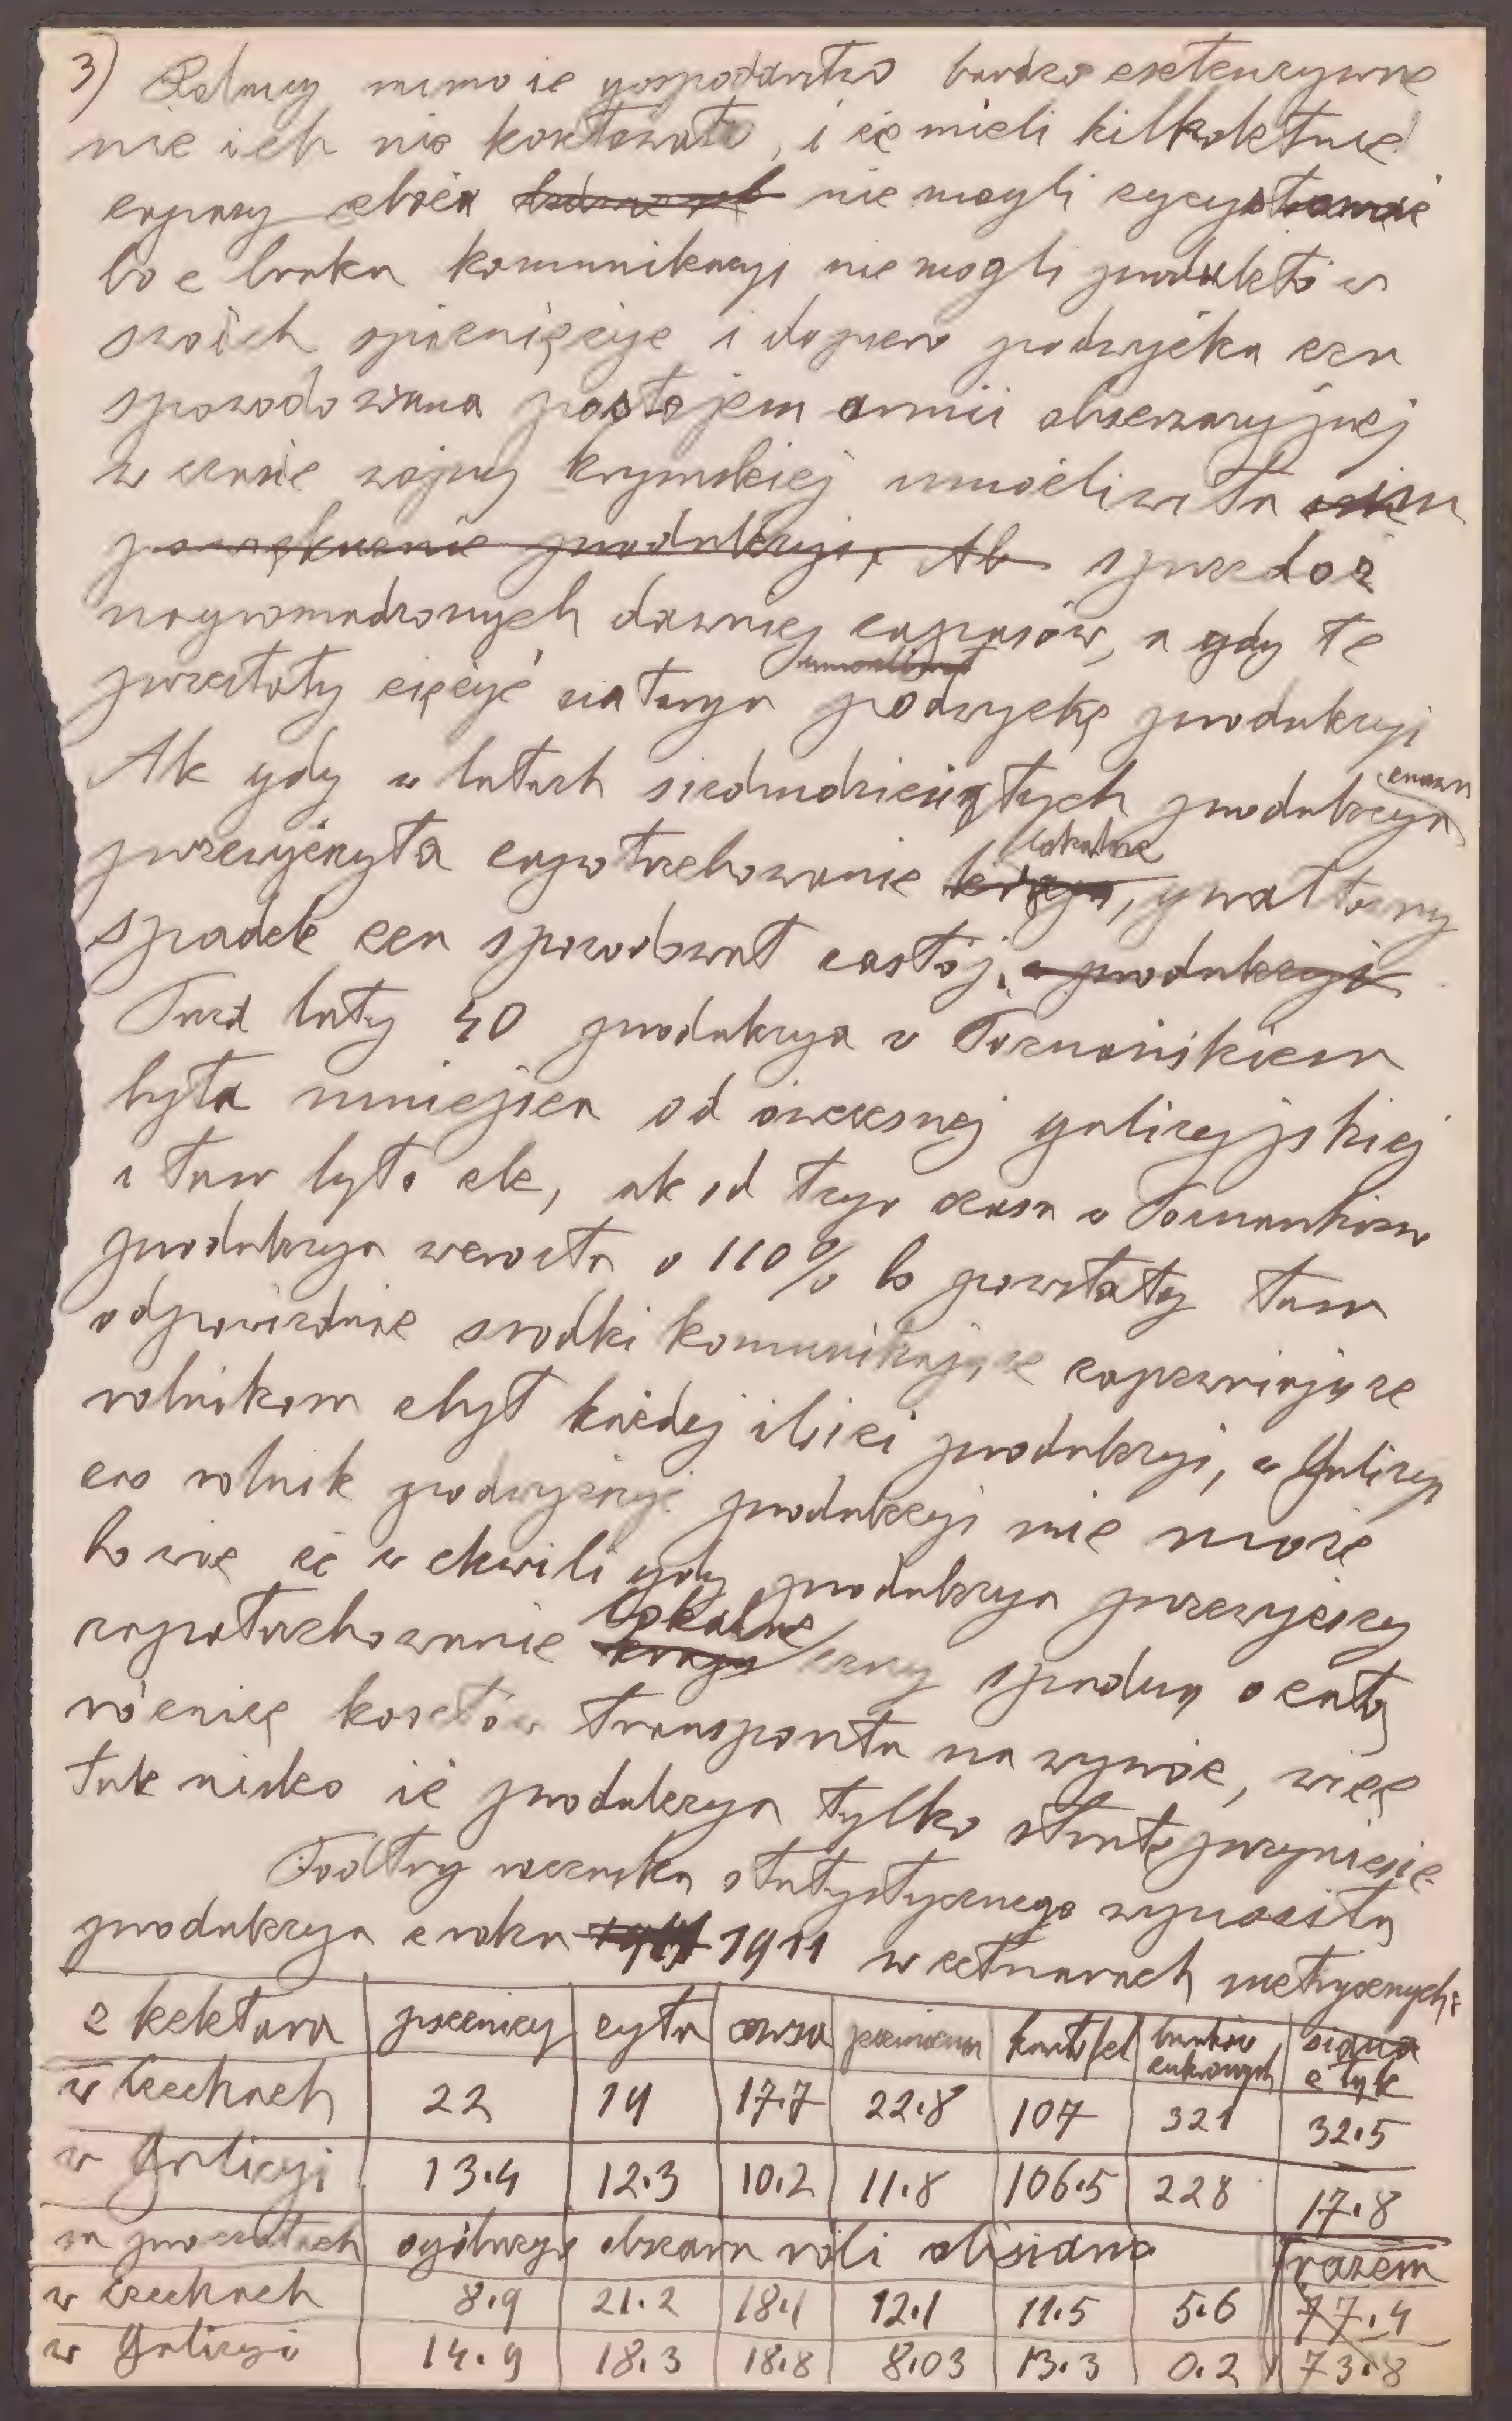 3) Rolnicy mimo że gospodarstwo bardzo ekstenzywne
nie ich nie kosztowało, i że mieli kilkoletnie
zapasy zboża nie mogli
bo z braku komunikacyi nie mogli produktów
swoich spieniężyć i dopiero podwyżka cen
spowodowana postojem armii obserwacyjnej
w czasie wojny krymskiej umożliwiła im
powiększenie produkcyi, Al sprzedaż
nagromadzonych dawniej zapasów, a gdy te
przestały ciężyć na targu podwyżkę produkcyi
Ale gdy w latach siedmdziesiątych produkcya znowu
przewyższyła zapotrzebowanie kraju lokalne, gwałtowny
spadek cen spowodował zastój, w produkcyi
Przed laty 40 produkcya w Poznańskiem
była mniejsza od ówczesnej galicyjskiej
i tam było źle, ale od tego czasu w Poznańskiem
produkcya wzrosła o 110% bo powstały tam
odpowiednie srodki komunikacyjne zapewniające
rolnikom zbyt każdej ilości produkcyi, w Galicyi
zaś rolnik podwyższyć produkcyi nie może
bo wie że w chwili gdy produkcya przewyższy
zapotrzebowanie kraju lokalne ceny spadną o całą
różnicę kosztów transportu na wywóz, więc
tak nisko że produkcya tylko stratę przyniesie.
Podług rocznika statystycznego wynosiła
produkcya z roku 1911 w cetnarach metrycznych:
z hektara pszenicy żyta owsa jęczmienia kartofel buraków cukrowych siana z łąk
w Czechach 22 19 17.7 22.8 107 321 32.5
w Galicyi 13.4 12.3 10.2 11.8 106.5 228 17.8
w procentach ogólnego obszaru roli obsiano razem
w Czechach 8.9 21.2 18.1 12.1 11.5 5.6 77.4
w Galicyi 14.9 18.3 18.8 8.03 13.3 0.2 73.8